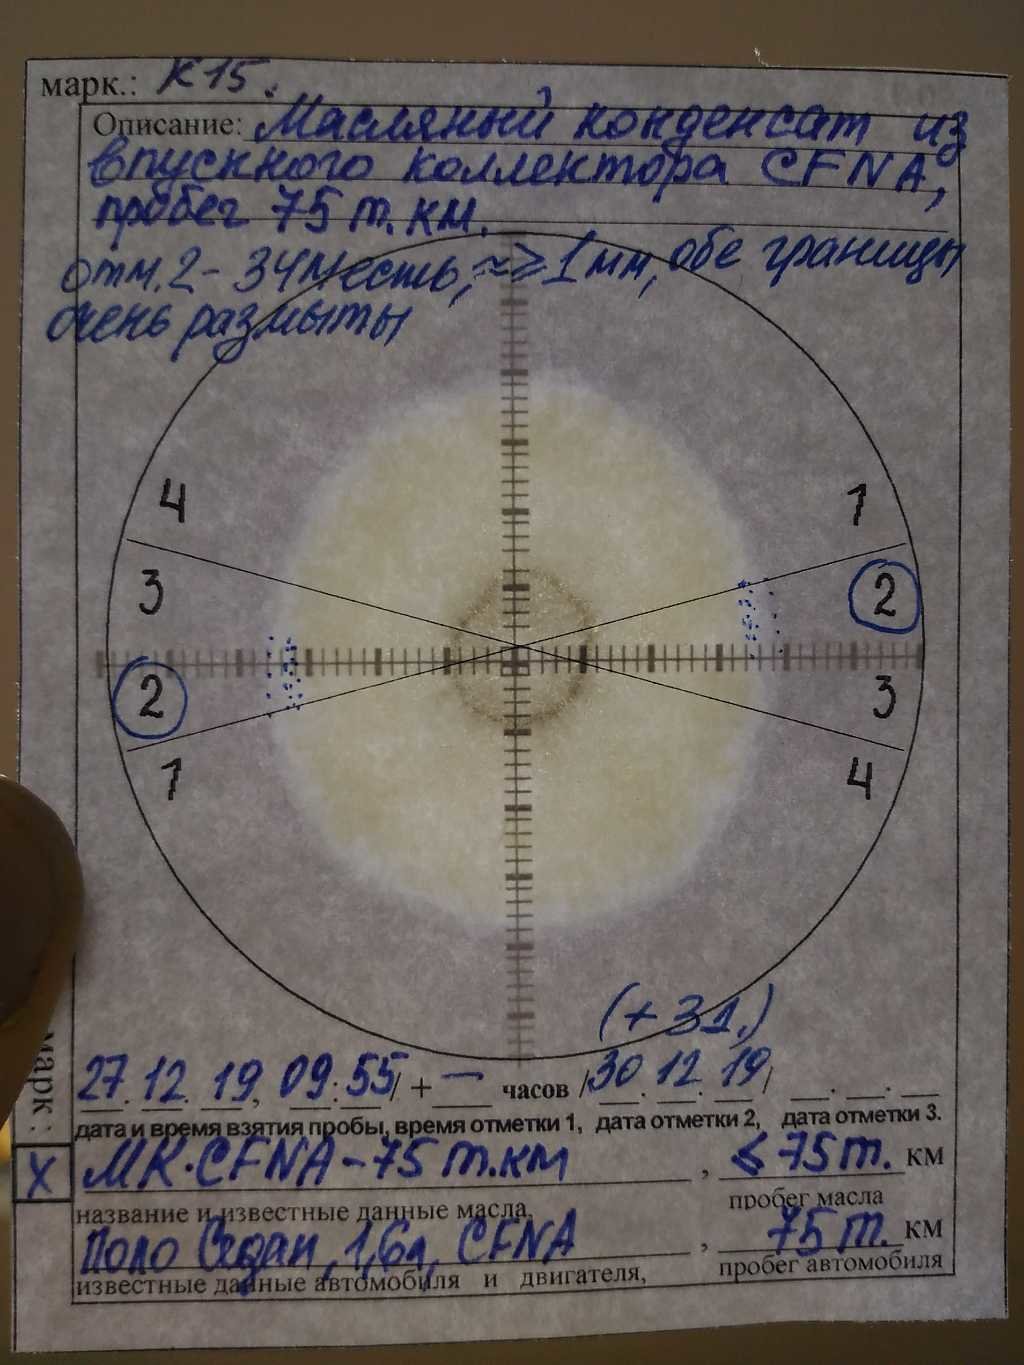 марк.: К15.
Описание: Масляный конденсат из
впускного коллектора CFNA,
пробег 75 т. км.
отм. 2 - ЗЧМ есть, ≈≥1мм, обе границы
очень размыты
4 1
3 2
2 3
1 4
(+ 3д.)
27.12.19, 09:55/ + — часов /30.12.19/ __.__.__
дата и время взятия пробы, время отметки 1, дата отметки 2, дата отметки 3.
марк.:
X МК·CFNA-75 т.км , ≤75т. км
название и известные данные масла, пробег масла
Поло Седан, 1,6л, CFNA , 75т. км
известные данные автомобиля и двигателя, пробег автомобиля